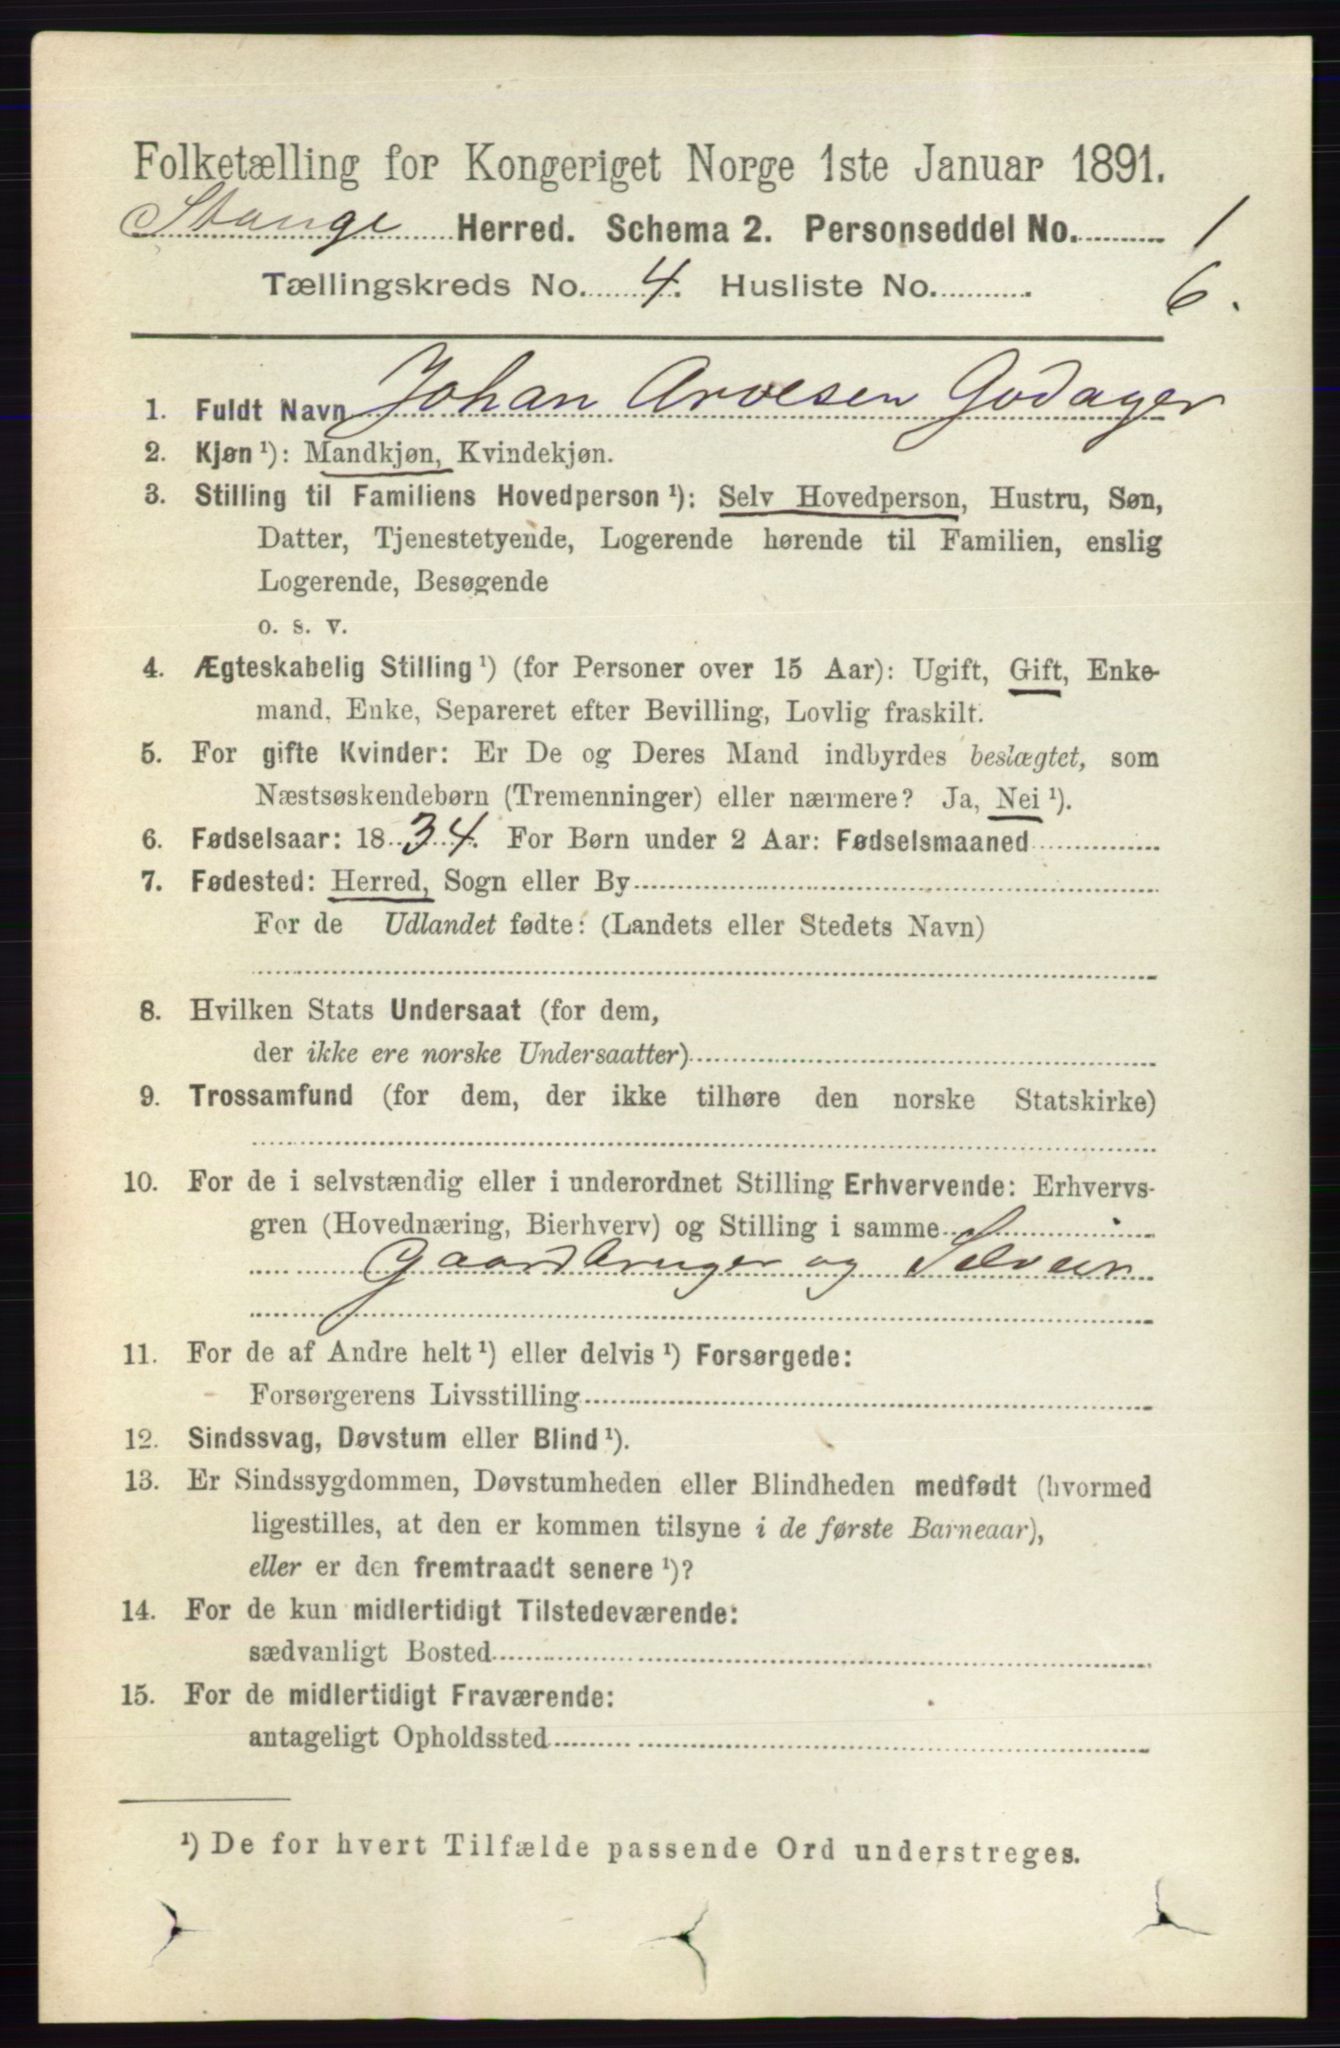 Folketælling for Kongeriget Norge 1ste Januar 1891.
Stange Herred. Schema 2. Personseddel No. 1
Tællingskreds No. 4. Husliste No. 6.
1. Fuldt Navn Johan Arvesen Godager
2. Kjøn ¹): Mandkjøn, Kvindekjøn.
3. Stilling til Familiens Hovedperson ¹): Selv Hovedperson, Hustru, Søn,
Datter, Tjenestetyende, Logerende hørende til Familien, enslig
Logerende, Besøgende
o. s. v.
4. Ægteskabelig Stilling ¹) (for Personer over 15 Aar): Ugift, Gift, Enke-
mand, Enke, Separeret efter Bevilling, Lovlig fraskilt.
5. For gifte Kvinder: Er De og Deres Mand indbyrdes beslægtet, som
Næstsøskendebørn (Tremenninger) eller nærmere? Ja, Nei ¹).
6. Fødselsaar: 1834. For Børn under 2 Aar: Fødselsmaaned
7. Fødested: Herred, Sogn eller By
For de Udlandet fødte: (Landets eller Stedets Navn)
8. Hvilken Stats Undersaat (for dem,
der ikke ere norske Undersaatter)
9. Trossamfund (for dem, der ikke tilhøre den norske Statskirke)
10. For de i selvstændig eller i underordnet Stilling Erhvervende: Erhvervs-
gren (Hovednæring, Bierhverv) og Stilling i samme
Gaardbruger og Selveier
11. For de af Andre helt ¹) eller delvis ¹) Forsørgede:
Forsørgerens Livsstilling
12. Sindssvag, Døvstum eller Blind ¹).
13. Er Sindssygdommen, Døvstumheden eller Blindheden medfødt (hvormed
ligestilles, at den er kommen tilsyne i de første Barneaar),
eller er den fremtraadt senere ¹)?
14. For de kun midlertidigt Tilstedeværende:
sædvanligt Bosted
15. For de midlertidigt Fraværende:
antageligt Opholdssted
¹) De for hvert Tilfælde passende Ord understreges.